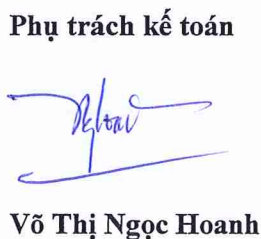 Phụ trách kế toán
Võ Thị Ngọc Hoanh